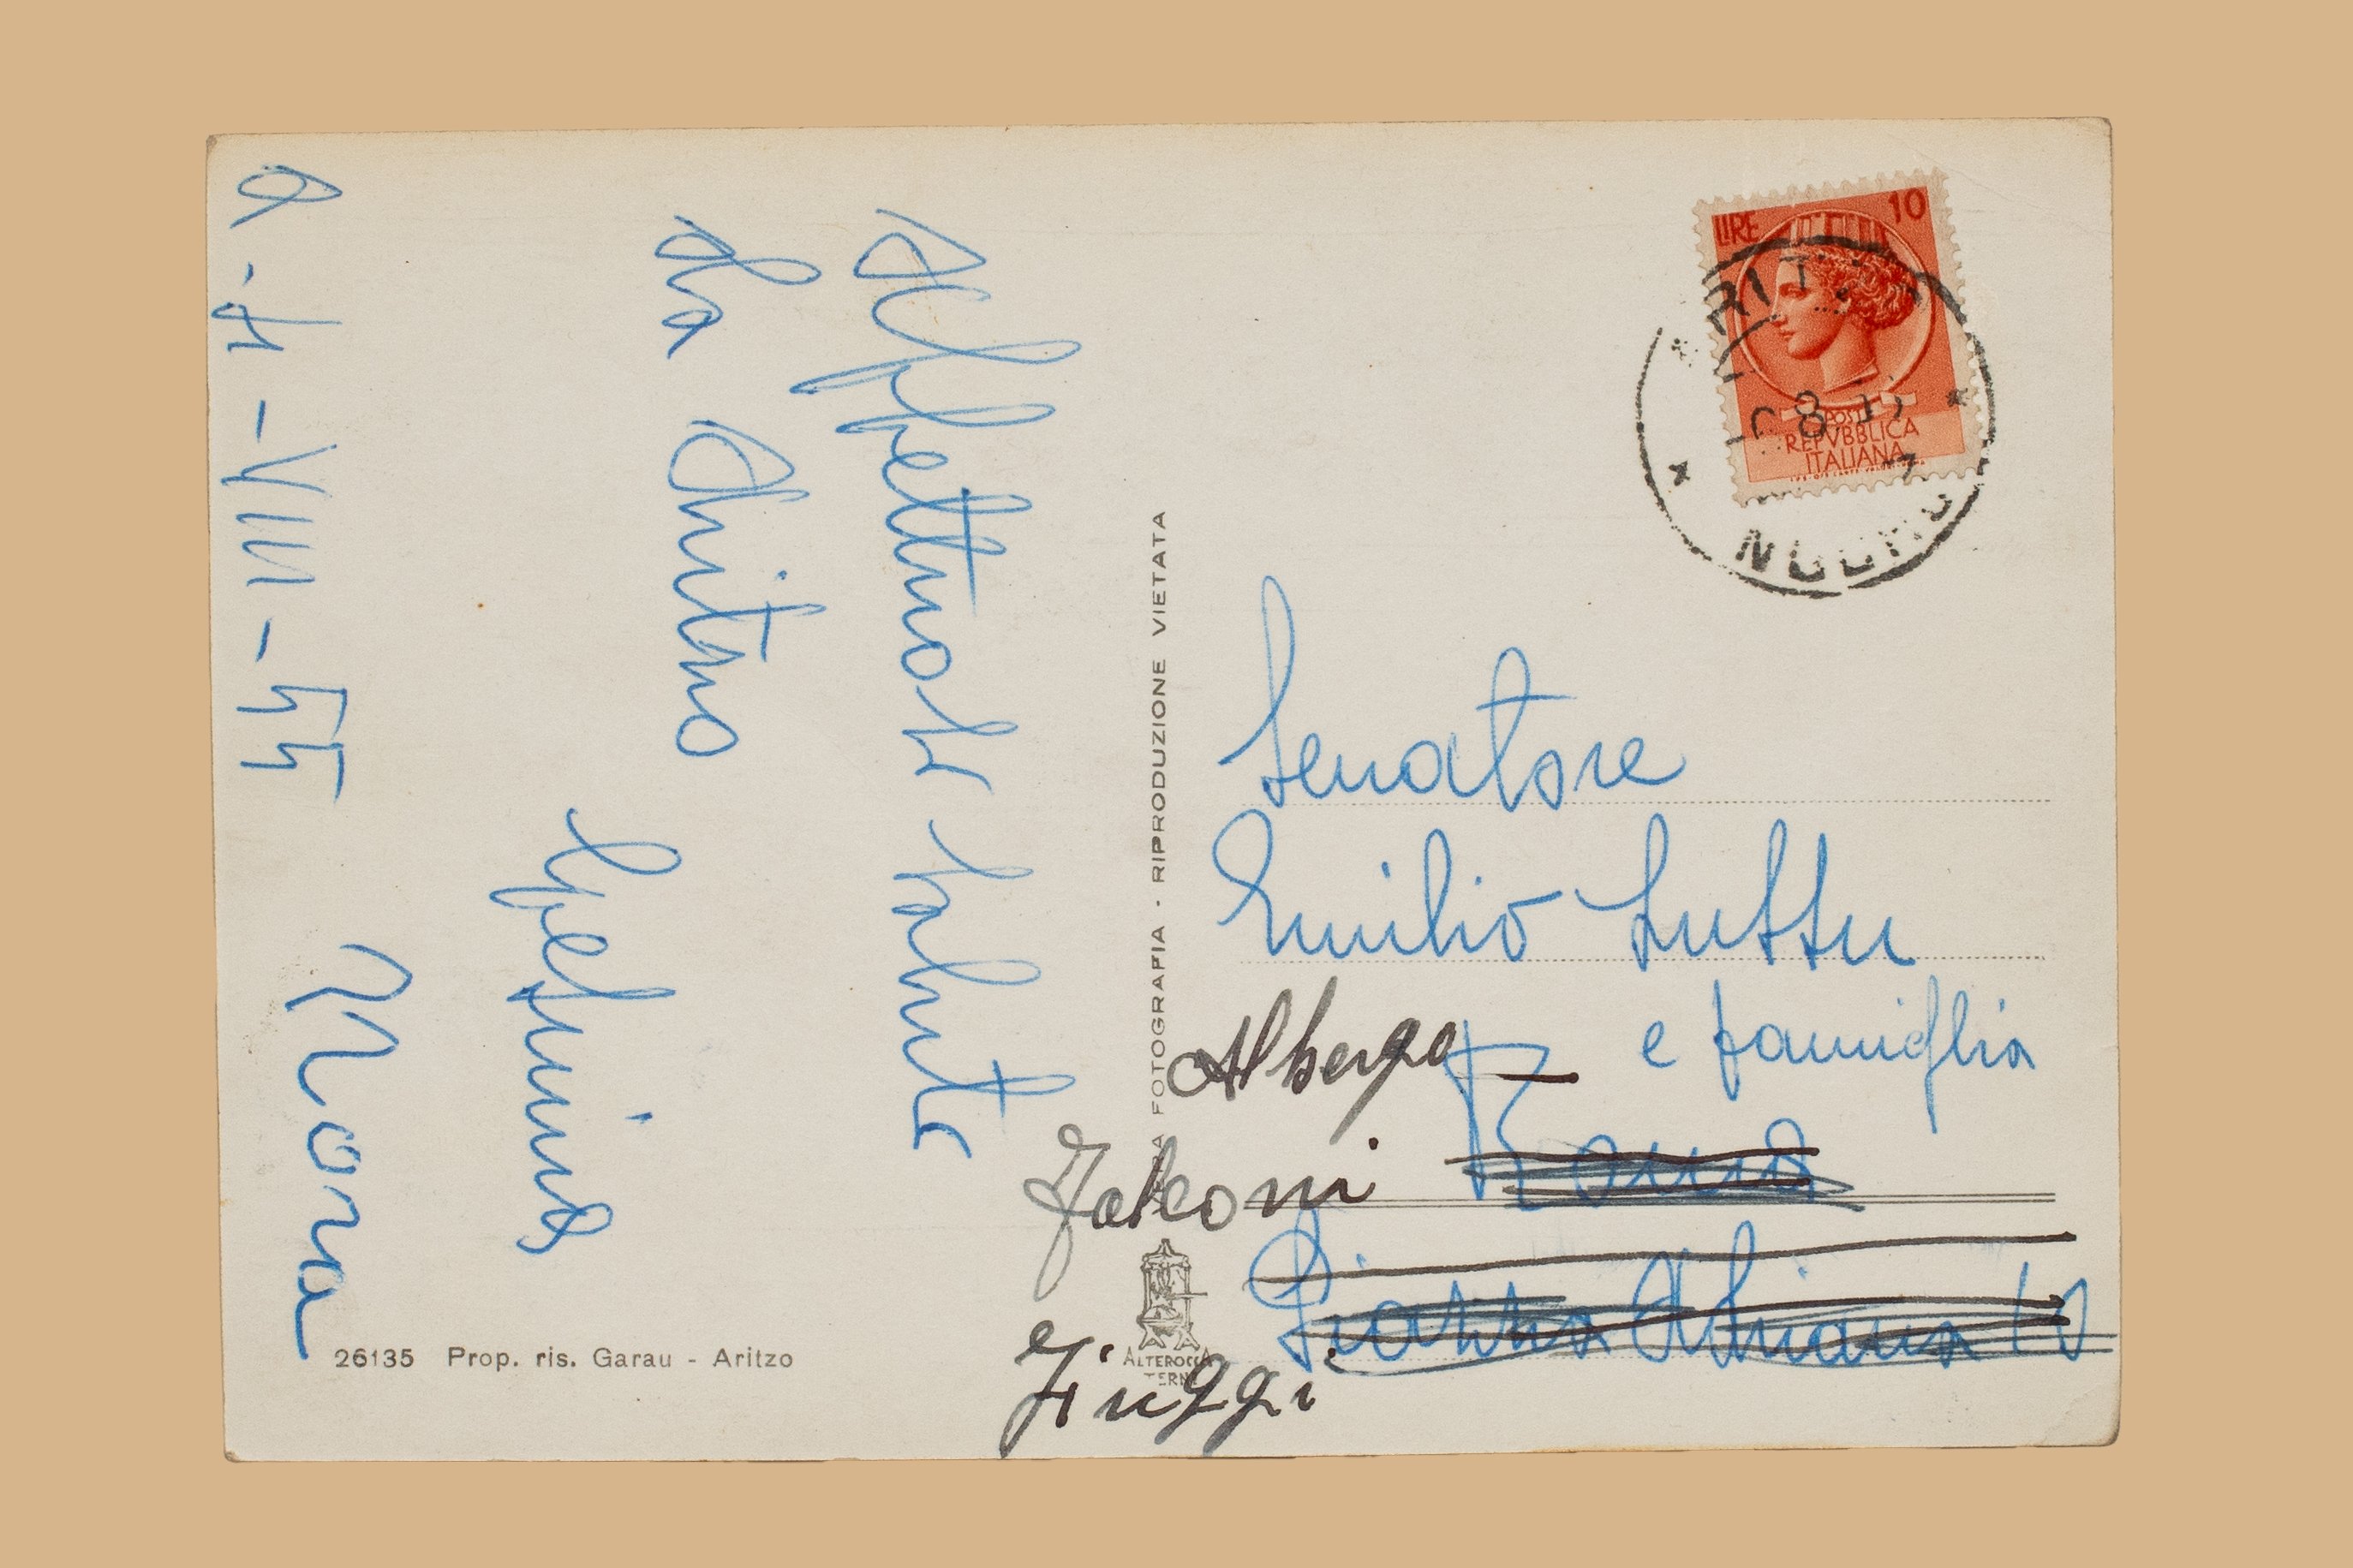 Affettuosi saluti
da Aritzo
Peppino
Nora
VIII-55
26135 Prop. ris. Garau - Aritzo
VERA FOTOGRAFIA - RIPRODUZIONE VIETATA
ALTEROCCA
TERNI
LIRE 10
POSTE
REPVBBLICA
ITALIANA
NUORO
Senatore
Emilio Lussu
e famiglia
Albergo
Roma
Falconi
Piazza Adriana 10
Fiuggi